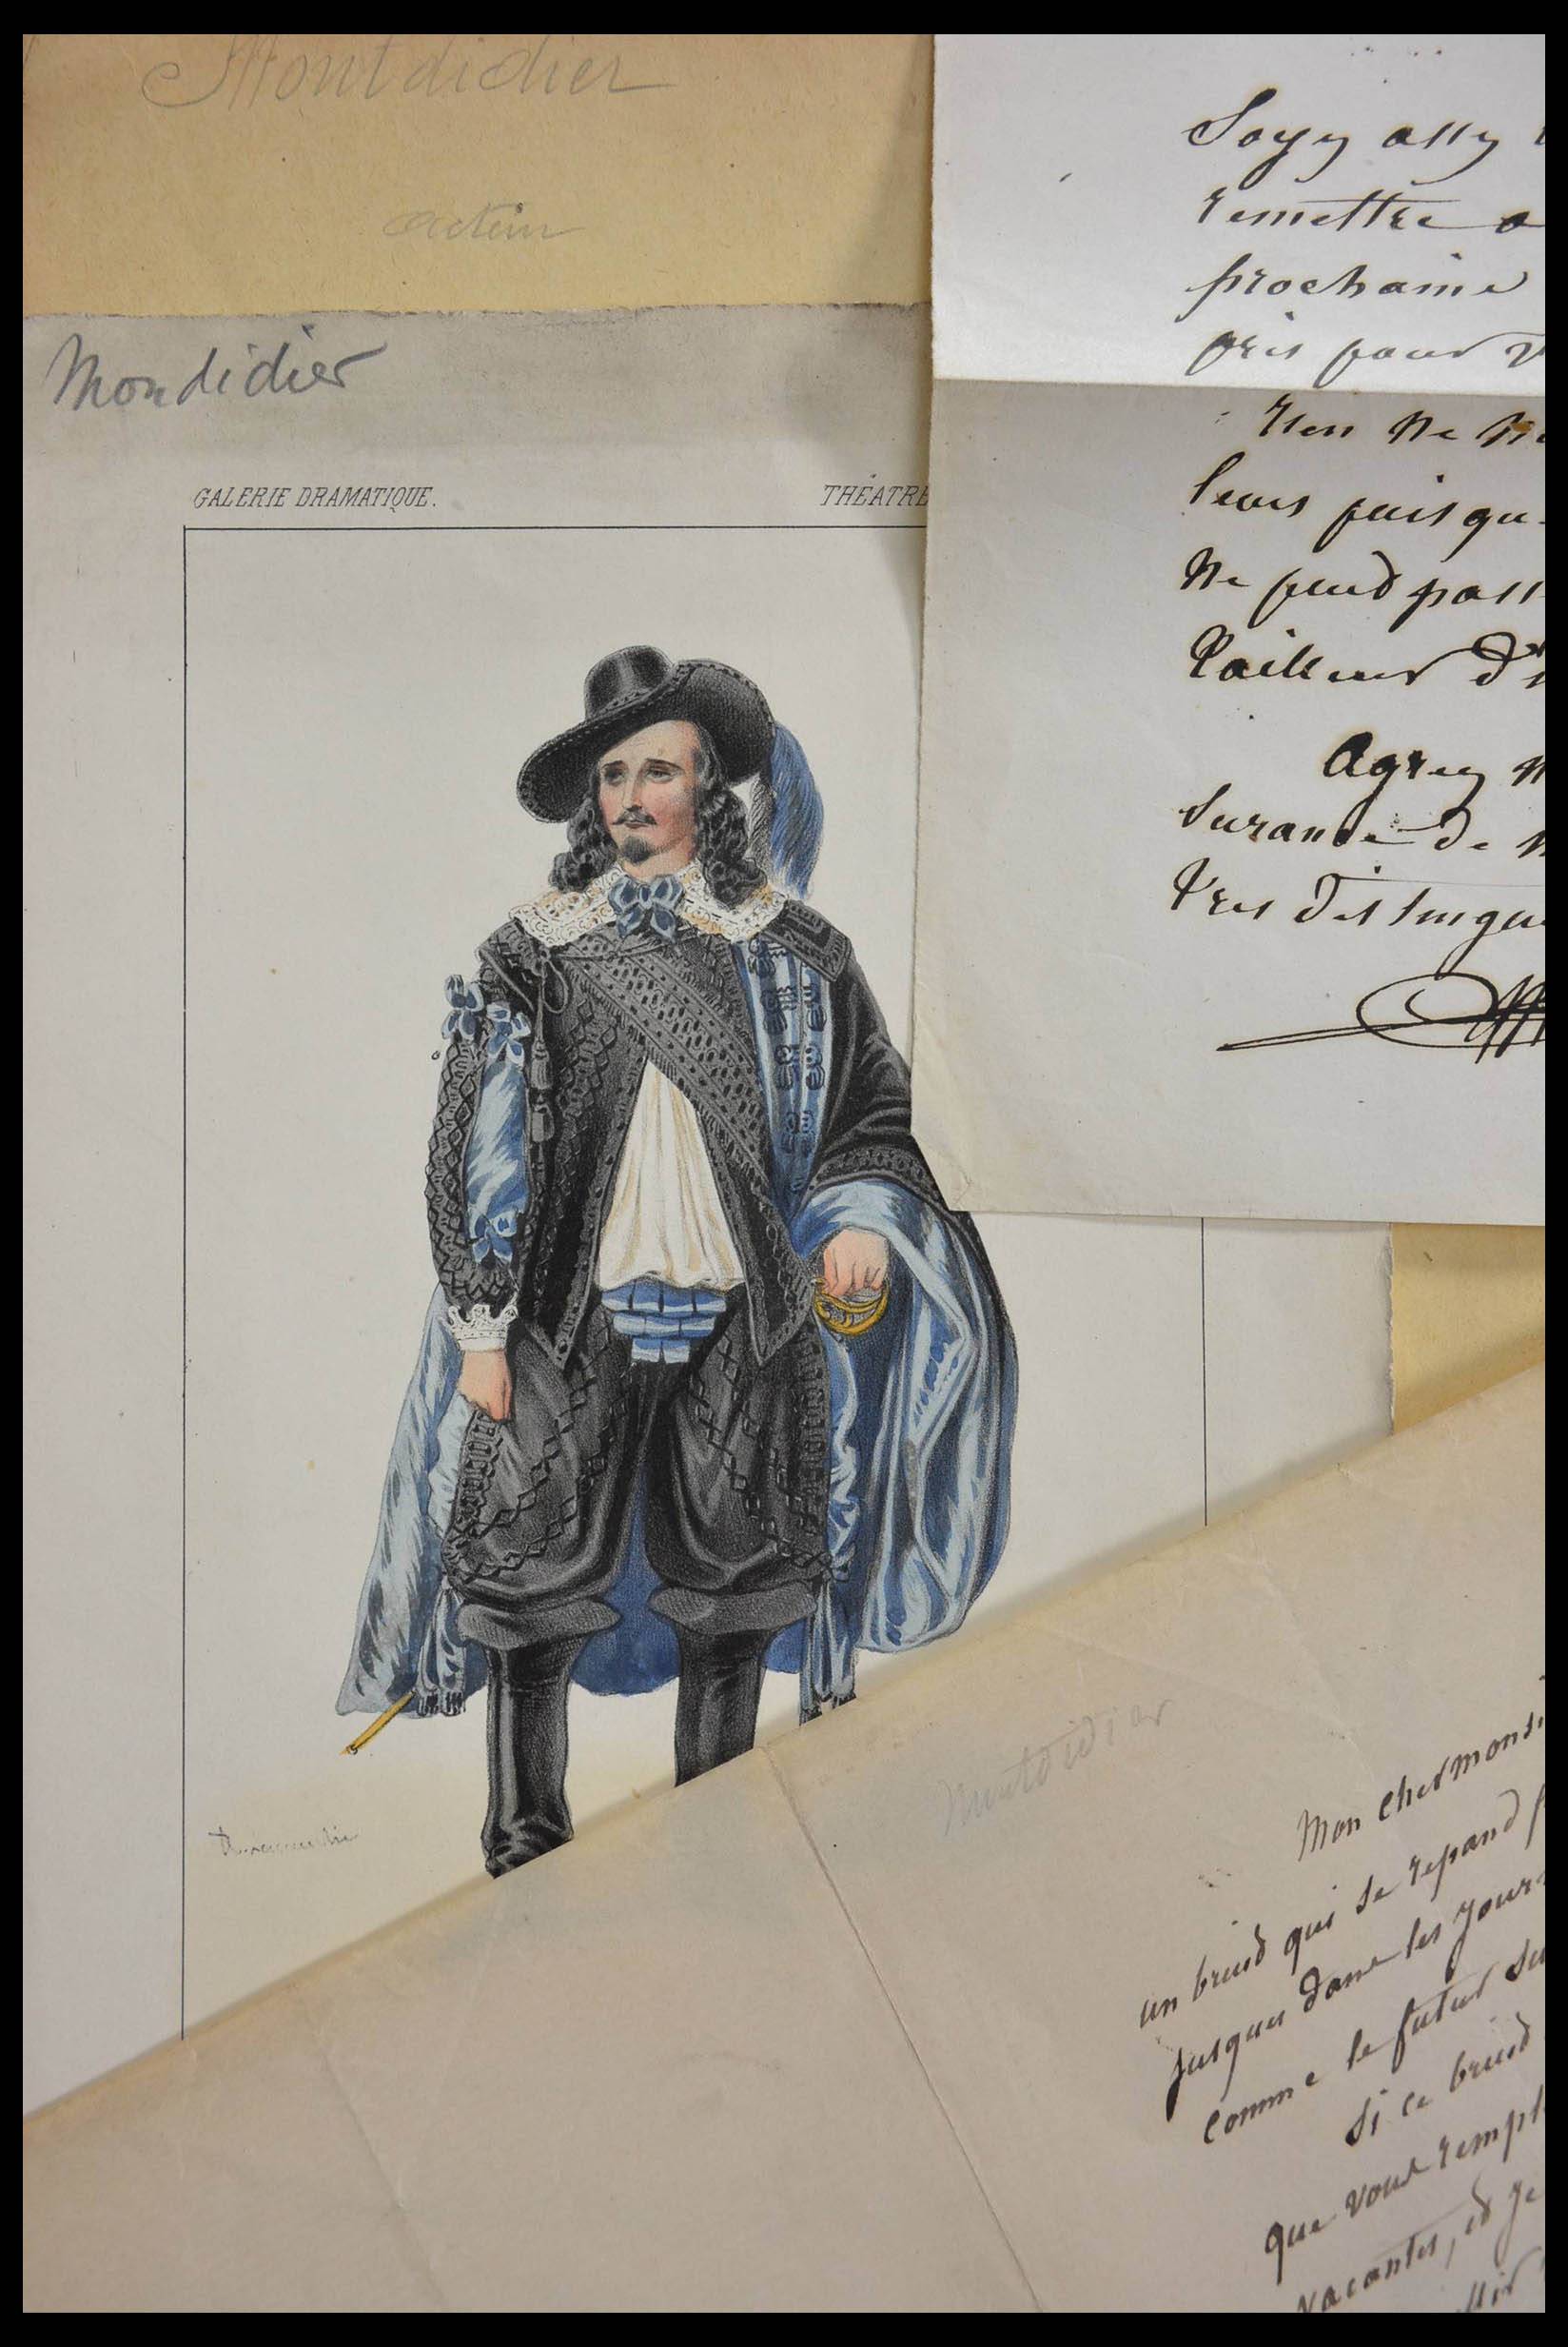 Montdidier
acteur
Mondidier
GALERIE DRAMATIQUE.
THÉATRE
Soyez assez
remettre a
prochaine
pris pour
Rien ne
leurs puisqu
ne peut pass
Tailleur d'
Agréez
surance de
très distingu
Montdidier
Mon cher monsi
un bruit qui se repand
jusques dans les jour
comme le futur
si ce bruit
que vous rempl
vacantes, et je